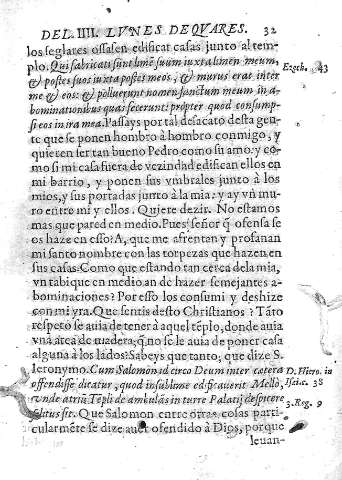 DEL IIII. LVNES DE QVARES. 32
los seglares ossassen edificar casas junto al tem-
plo. Qui fabricati sunt limē suum iuxta limen meum,
& postes suos iuxta postes meos, & murus erat inter
me & eos: & polluerunt nomen sanctum meum in a-
bominationibus quas fecerunt: propter quod consump-
si eos in ira mea. Passays por tal desacato desta gen-
te que se ponen hombro à hombro conmigo, y
quieren ser tan bueno Pedro como su amo: y co-
mo si mi casa fuera de vezindad edifican ellos en
mi barrio, y ponen sus vmbrales junto à los
mios, y sus portadas junto à la mia: y ay vn mu-
ro entre mi y ellos. Quiere dezir. No estamos
mas que pared en medio. Pues señor q̃ ofensa se
os haze en esso? A, que me afrentan y profanan
mi santo nombre con las torpezas que hazen en
sus casas. Como que estando tan cerca de la mia,
vn tabique en medio an de hazer semejantes a-
bominaciones? Por esso los consumi y deshize
con mi yra. Que sentis desto Christianos? Tãto
respeto se auia de tener à aquel tẽplo, donde auia
vna arca de madera; q̃ no se le auia de poner casa
alguna à los lados? Sabeys que tanto; que dize S.
Ieronymo. Cum Salomon id circo Deum inter cætera
offendisse dicatur, quod in sublime edificauerit Mello,
vnde atriũ Tẽpli de ambulãs in turre Palatij despicere
solitus sit. Que Salomon entre otras cosas parti-
cularmẽte se dize auer ofendido à Dios, porque
leuan-
Ezech. 43
D. Hiero. in
Isai. c. 38
3. Reg. 9